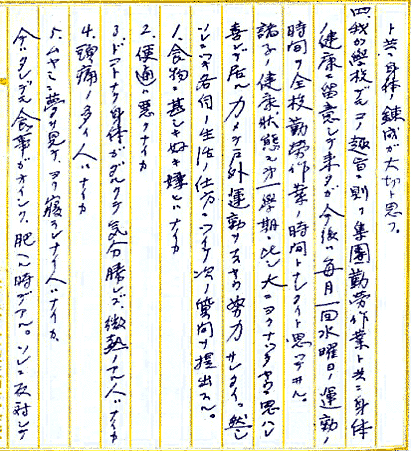 ト共ニ身体ノ錬成ガ大切ト思フ。
四、我ガ学校デモコノ趣旨ニ則リ集團勤労作業ト共ニ身体
ノ健康ニ留意シテ来タガ今後ハ毎月一回水曜日ノ運動ノ
時間ヲ全校勤労作業ノ時間トナシタイト思ッテヰル。
諸子ノ健康状態ハ第一學期ニ比シ大ニヨクナッタヤウニ思ハレ
喜ンデ居ル。力メテ戸外運動ヲナスヤウ努力サレタイ。然シ
ソレニハ各自ノ生活ノ仕方ニツイテ次ノ質問ヲ提出スル。
1.食物ニ甚シキ好キ嫌ヒハナイカ
2.便通ハ悪クナイカ
3.ドコトナク身体ガダルクテ気分勝レズ微熱ノアル人ハナイカ
4.頭痛ノ多イ人ハナイカ
5.ムヤミニ夢ヲ見テ、ヨク寝ラレナイ人ハナイカ
今、タレデモ食事ガオイシク、肥ヘル時デアル。ソレニ反対シテ